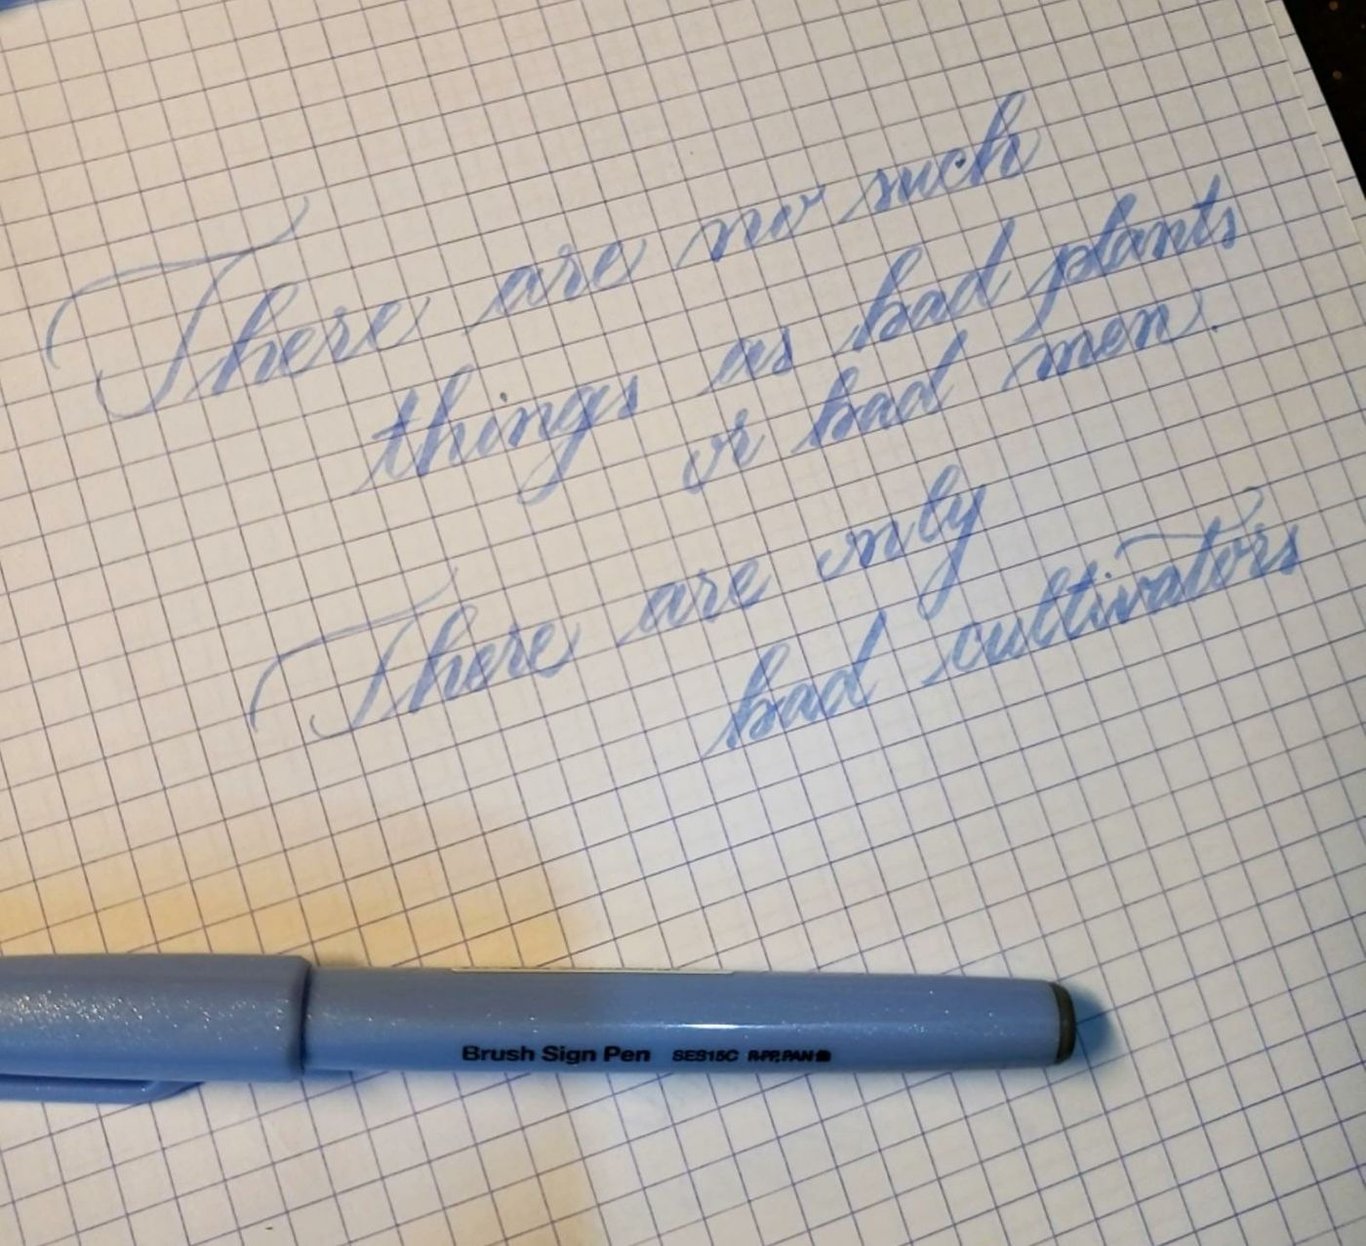 There are no such
things as bad plants
or bad men.
There are only
bad cultivators
Brush Sign Pen SES15C